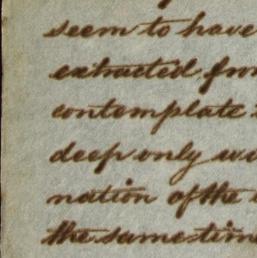 seem to have
extracted from
contemplate
deep only
nation of the
the same time